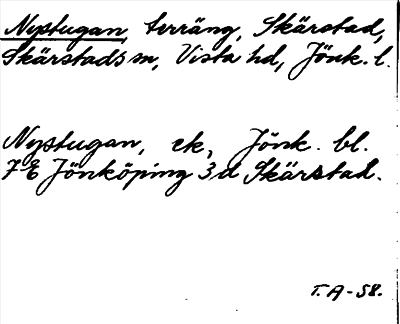 Nystugan, terräng, Skärstad,
Skärstads sn, Vista hd, Jönk. l.
Nystugan, ek, Jönk. bl.
7E Jönköping 3d Skärstad.
T.A-58.